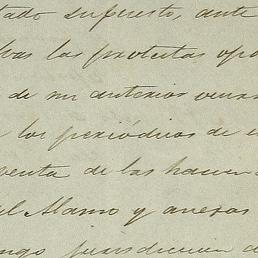 tado supuesto, ante
las protestas opo
de mi anterior ocurs
los periódicos de e
venta de las hacien
el Alamo y anexas
jurisdiccion d